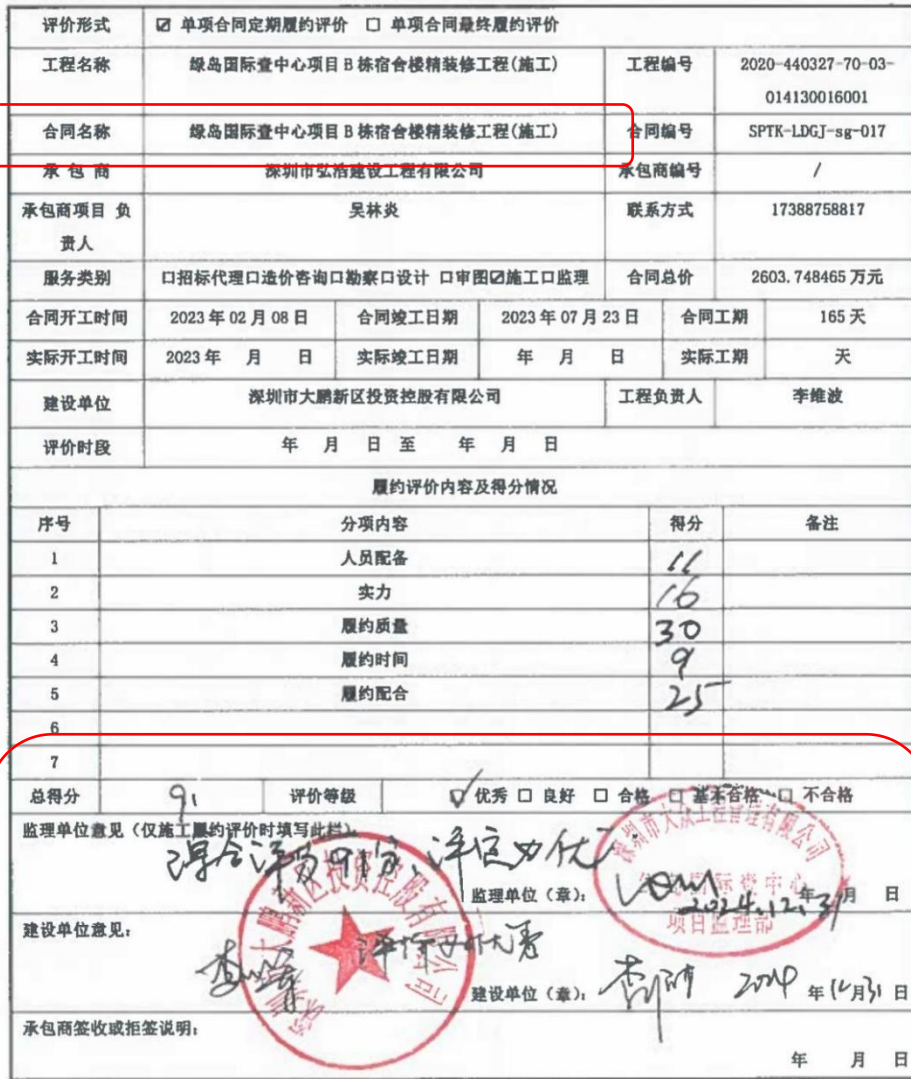 评价形式 ☑ 单项合同定期履约评价 □ 单项合同最终履约评价
工程名称 绿岛国际壹中心项目 B 栋宿舍楼精装修工程(施工) 工程编号 2020-440327-70-03-
014130016001
合同名称 绿岛国际壹中心项目 B 栋宿舍楼精装修工程(施工) 合同编号 SPTK-LDGJ-sg-017
承 包 商 深圳市弘浩建设工程有限公司 承包商编号 /
承包商项目 负 吴林炎 联系方式 17388758817
责人
服务类别 □招标代理□造价咨询□勘察□设计 □审图☑施工□监理 合同总价 2603.748465 万元
合同开工时间 2023 年 02 月 08 日 合同竣工日期 2023 年 07 月 23 日 合同工期 165 天
实际开工时间 2023 年 月 日 实际竣工日期 年 月 日 实际工期 天
建设单位 深圳市大鹏新区投资控股有限公司 工程负责人 李维波
评价时段 年 月 日 至 年 月 日
履约评价内容及得分情况
序号 分项内容 得分 备注
1 人员配备 11
2 实力 16
3 履约质量 30
4 履约时间 9
5 履约配合 25
6
7
总得分 91 评价等级 ☑ 优秀 □ 良好 □ 合格 □ 基本合格 □ 不合格
监理单位意见（仅施工履约评价时填写此栏）
综合评分91分,评定为优
监理单位（章）： 2024.12.31 年 月 日
深圳市大众工程管理有限公司
项目监理部
建设单位意见：
评价为优秀
建设单位（章）： 2024 年 12 月 31 日
大鹏新区投资控股有限公司
承包商签收或拒签说明：
年 月 日